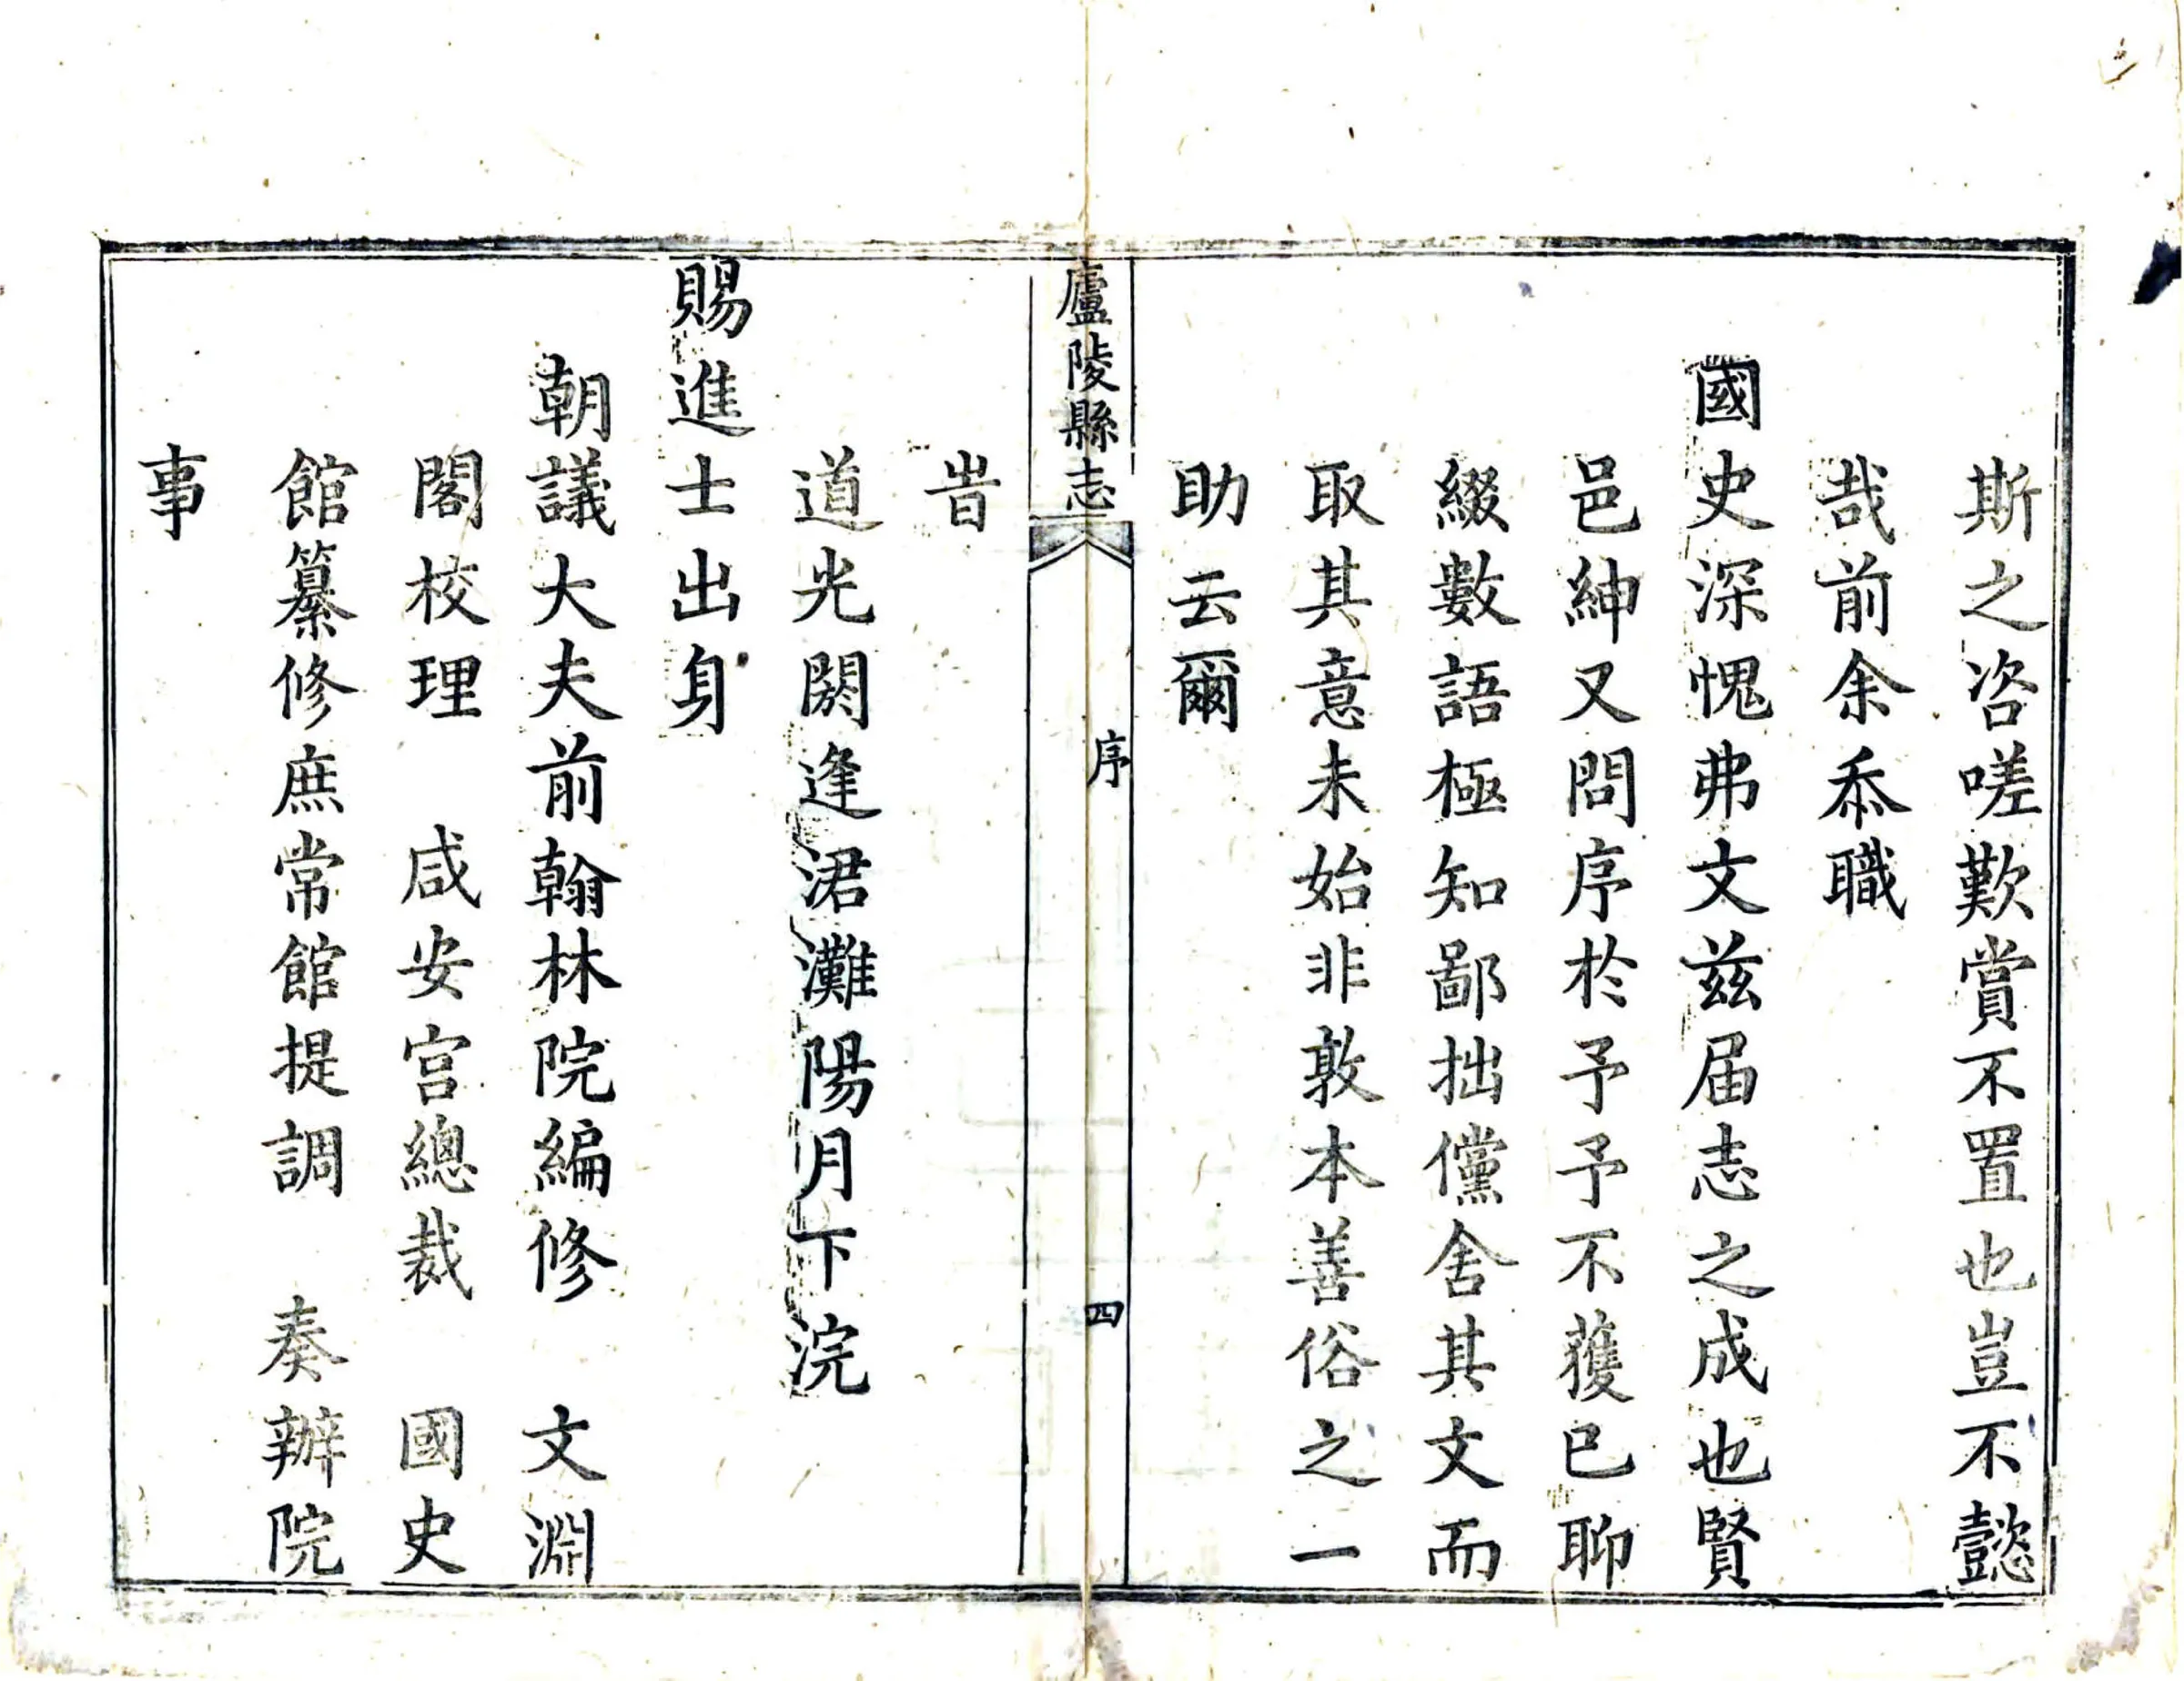 斯之咨嗟歎賞不置也豈不懿
哉前余忝職
國史深愧弗文兹届志之成也賢
邑紳又問序於予予不獲已聊
綴數語極知鄙拙儻舍其文而
取其意未始非敦本善俗之一
助云爾
廬陵縣志
序
四
旹
道光閼逢涒灘陽月下浣
賜進士出身
朝議大夫前翰林院編修 文淵
閣校理 咸安宫總裁 國史
館纂修庶常館提調 奏辦院
事